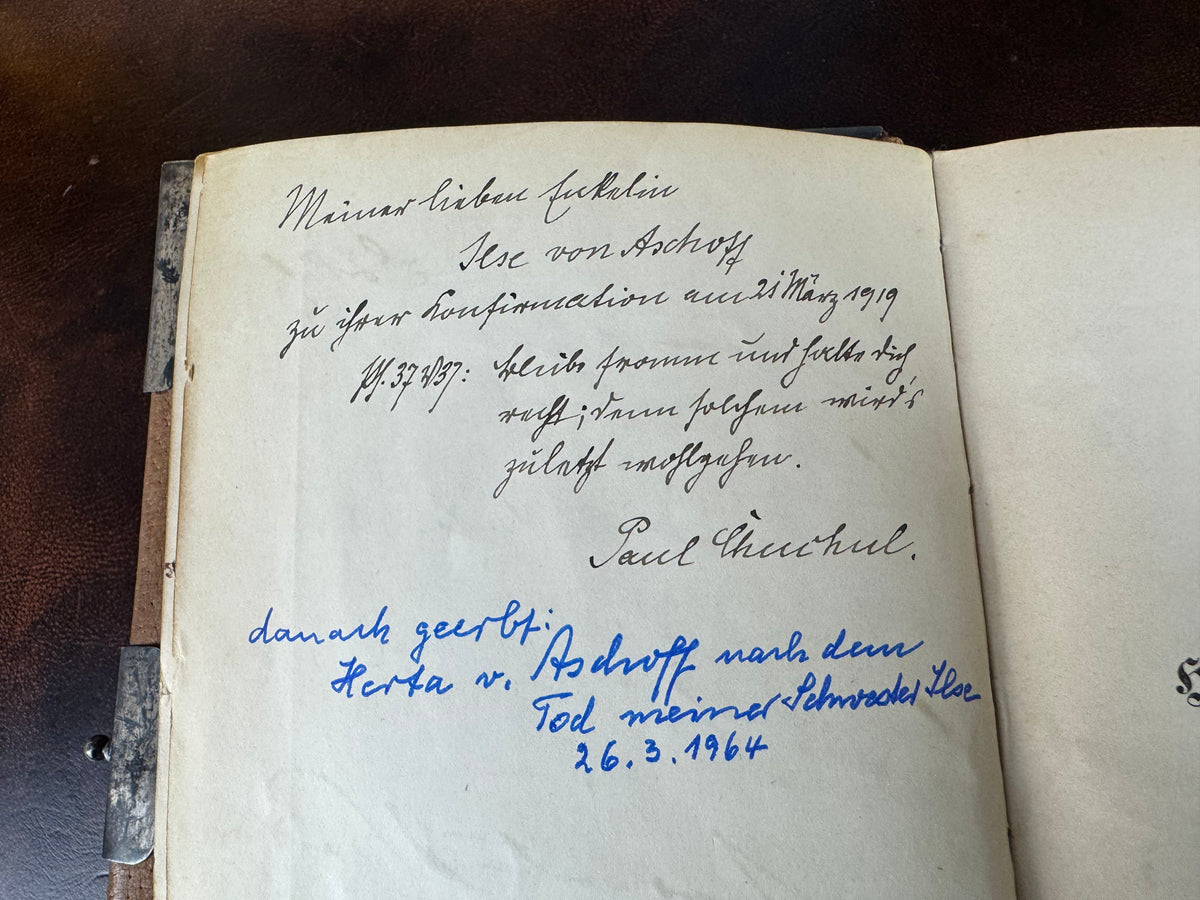 Meiner lieben Enkelin
Ilse von Aschoff
zu ihrer Konfirmation am 21 März 1919
Ps. 37 V 37: Bleibe fromm und halte dich
recht; denn solchem wird's
zuletzt wohlgehen.
Paul
danach geerbt:
Herta v. Aschoff nach dem
Tod meiner Schwester Ilse
26.3.1964